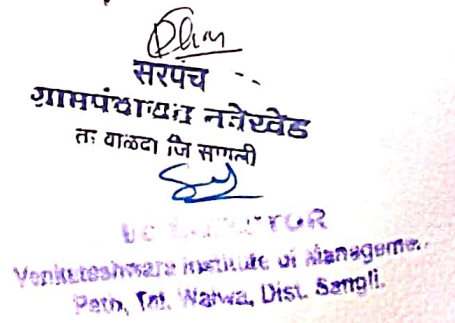 सरपंच
ग्रामपंचायत नवेखेड
ता वाळवा जि सांगली
DIRECTOR
Venkateshwara Institute of Management
Peth, Tal. Walwa, Dist. Sangli.